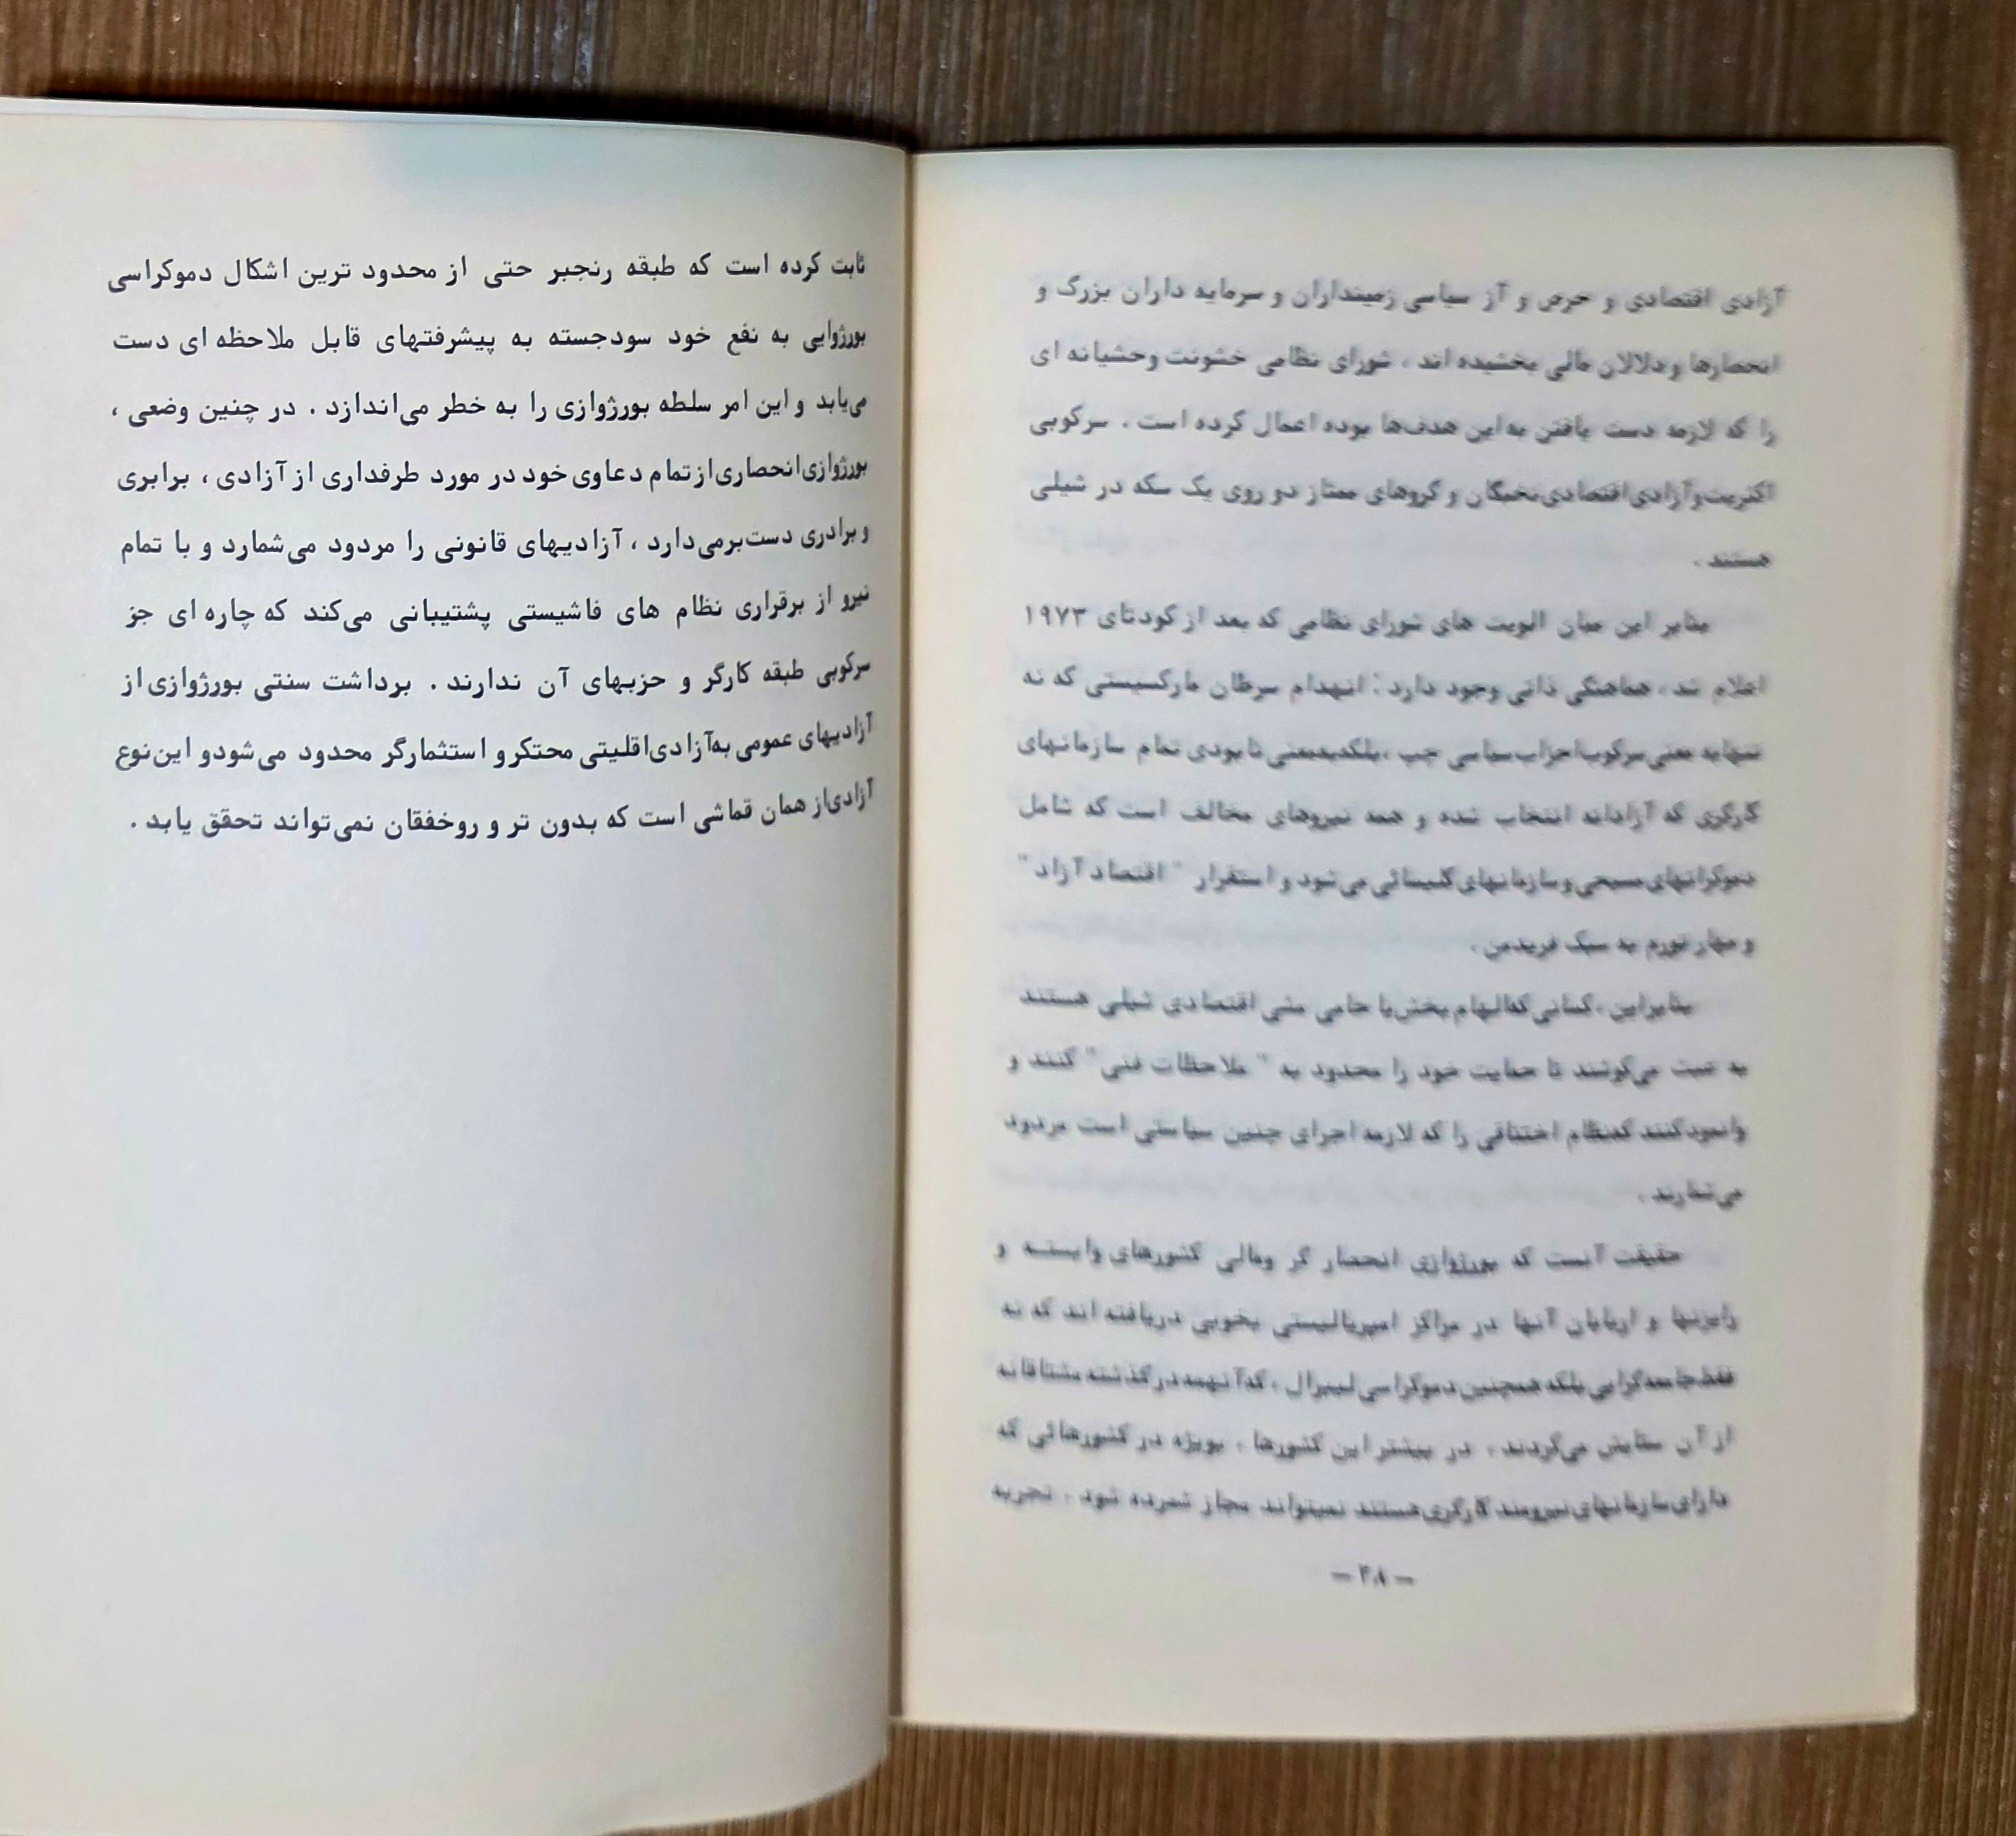 آزادی اقتصادی و حرص و آز سیاسی زمینداران و سرمایه داران بزرگ و
انحصارها و دلالان مالی بخشیده اند ، شورای نظامی خشونت وحشیانه ای
را که لازمه دست یافتن به این هدف‌ها بوده اعمال کرده است . سرکوبی
اکثریت و آزادی اقتصادی نخبگان و گروهای ممتاز دو روی یک سکه در شیلی
هستند .
بنابر این میان الویت های شورای نظامی که بعد از کودتای ۱۹۷۳
اعلام شد ، هماهنگی ذاتی وجود دارد : انهدام سرطان مارکسیستی که نه
تنها به معنی سرکوب احزاب سیاسی چپ ، بلکه به معنی نابودی تمام سازمانهای
کارگری که آزادانه انتخاب شده و همه نیروهای مخالف است که شامل
دموکراتهای مسیحی و سازمانهای کلیسائی می‌شود و استقرار " اقتصاد آزاد "
و مهار تورم به سبک فریدمن .
بنابراین ، کسانی که الهام بخش یا حامی مشی اقتصادی شیلی هستند
به عبث می‌کوشند تا حمایت خود را محدود به " ملاحظات فنی " کنند و
وانمود کنند که نظام اختناقی را که لازمه اجرای چنین سیاستی است مردود
می‌شمارند .
حقیقت آنست که بورژوازی انحصار گر ومالی کشورهای وابسته و
رایزنها و اربابان آنها در مراکز امپریالیستی بخوبی دریافته اند که نه
فقط جامعه گرایی بلکه همچنین دموکراسی لیبرال ، که آنهمه در گذشته مشتاقانه
از آن ستایش می‌کردند ، در بیشتر این کشورها ، بویژه در کشورهائی که
دارای سازمانهای نیرومند کارگری هستند نمیتواند مجاز شمرده شود . تجربه
— ۲۸ —
ثابت کرده است که طبقه رنجبر حتی از محدود ترین اشکال دموکراسی
بورژوایی به نفع خود سودجسته به پیشرفتهای قابل ملاحظه ای دست
می‌یابد و این امر سلطه بورژوازی را به خطر می‌اندازد . در چنین وضعی ،
بورژوازی انحصاری از تمام دعاوی خود در مورد طرفداری از آزادی ، برابری
و برادری دست‌برمی‌دارد ، آزادیهای قانونی را مردود می‌شمارد و با تمام
نیرو از برقراری نظام های فاشیستی پشتیبانی می‌کند که چاره ای جز
سرکوبی طبقه کارگر و حزبهای آن ندارند . برداشت سنتی بورژوازی از
آزادیهای عمومی به‌آزادی اقلیتی محتکر و استثمارگر محدود می‌شود و این نوع
آزادی از همان قماشی است که بدون تر و روخفقان نمی‌تواند تحقق یابد .